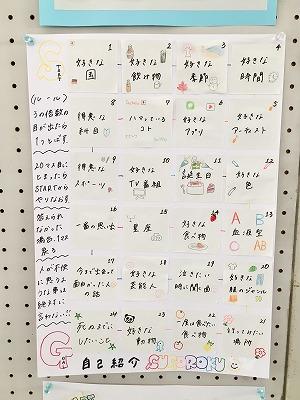 START
1
好きな
国
2
好きな
飲み物
3
好きな
季節
4
好きな
時間
(ルール)
3の倍数の
目が出たら
1つとばす
8
得意な
科目
7
ハマっている
コト
6
好きな
アプリ
5
好きな
アーティスト
20マス目に
とまったら
STARTから
やりなおす
9
得意な
スポーツ
10
好きな
TV番組
11
誕生日
12
好きな
色
答えられ
なかった
場合、1マス
戻る
16
一番の思い出
15
星座
14
好きな
食べ物
13
A B
血液型
O AB
人が不快
に思うよ
うな事は
絶対に
言わない!!
17
今まで出会った
面白かった人
の話
18
好きな
芸能人
19
泣きたい
時に聞く曲
20
好きな
服のジャンル
24
死ぬまでに
したいこと
23
好きな
動物
22
食べたい
食べ物
21
行ってみたい
場所
GOAL
自己紹介 SUGOROKU